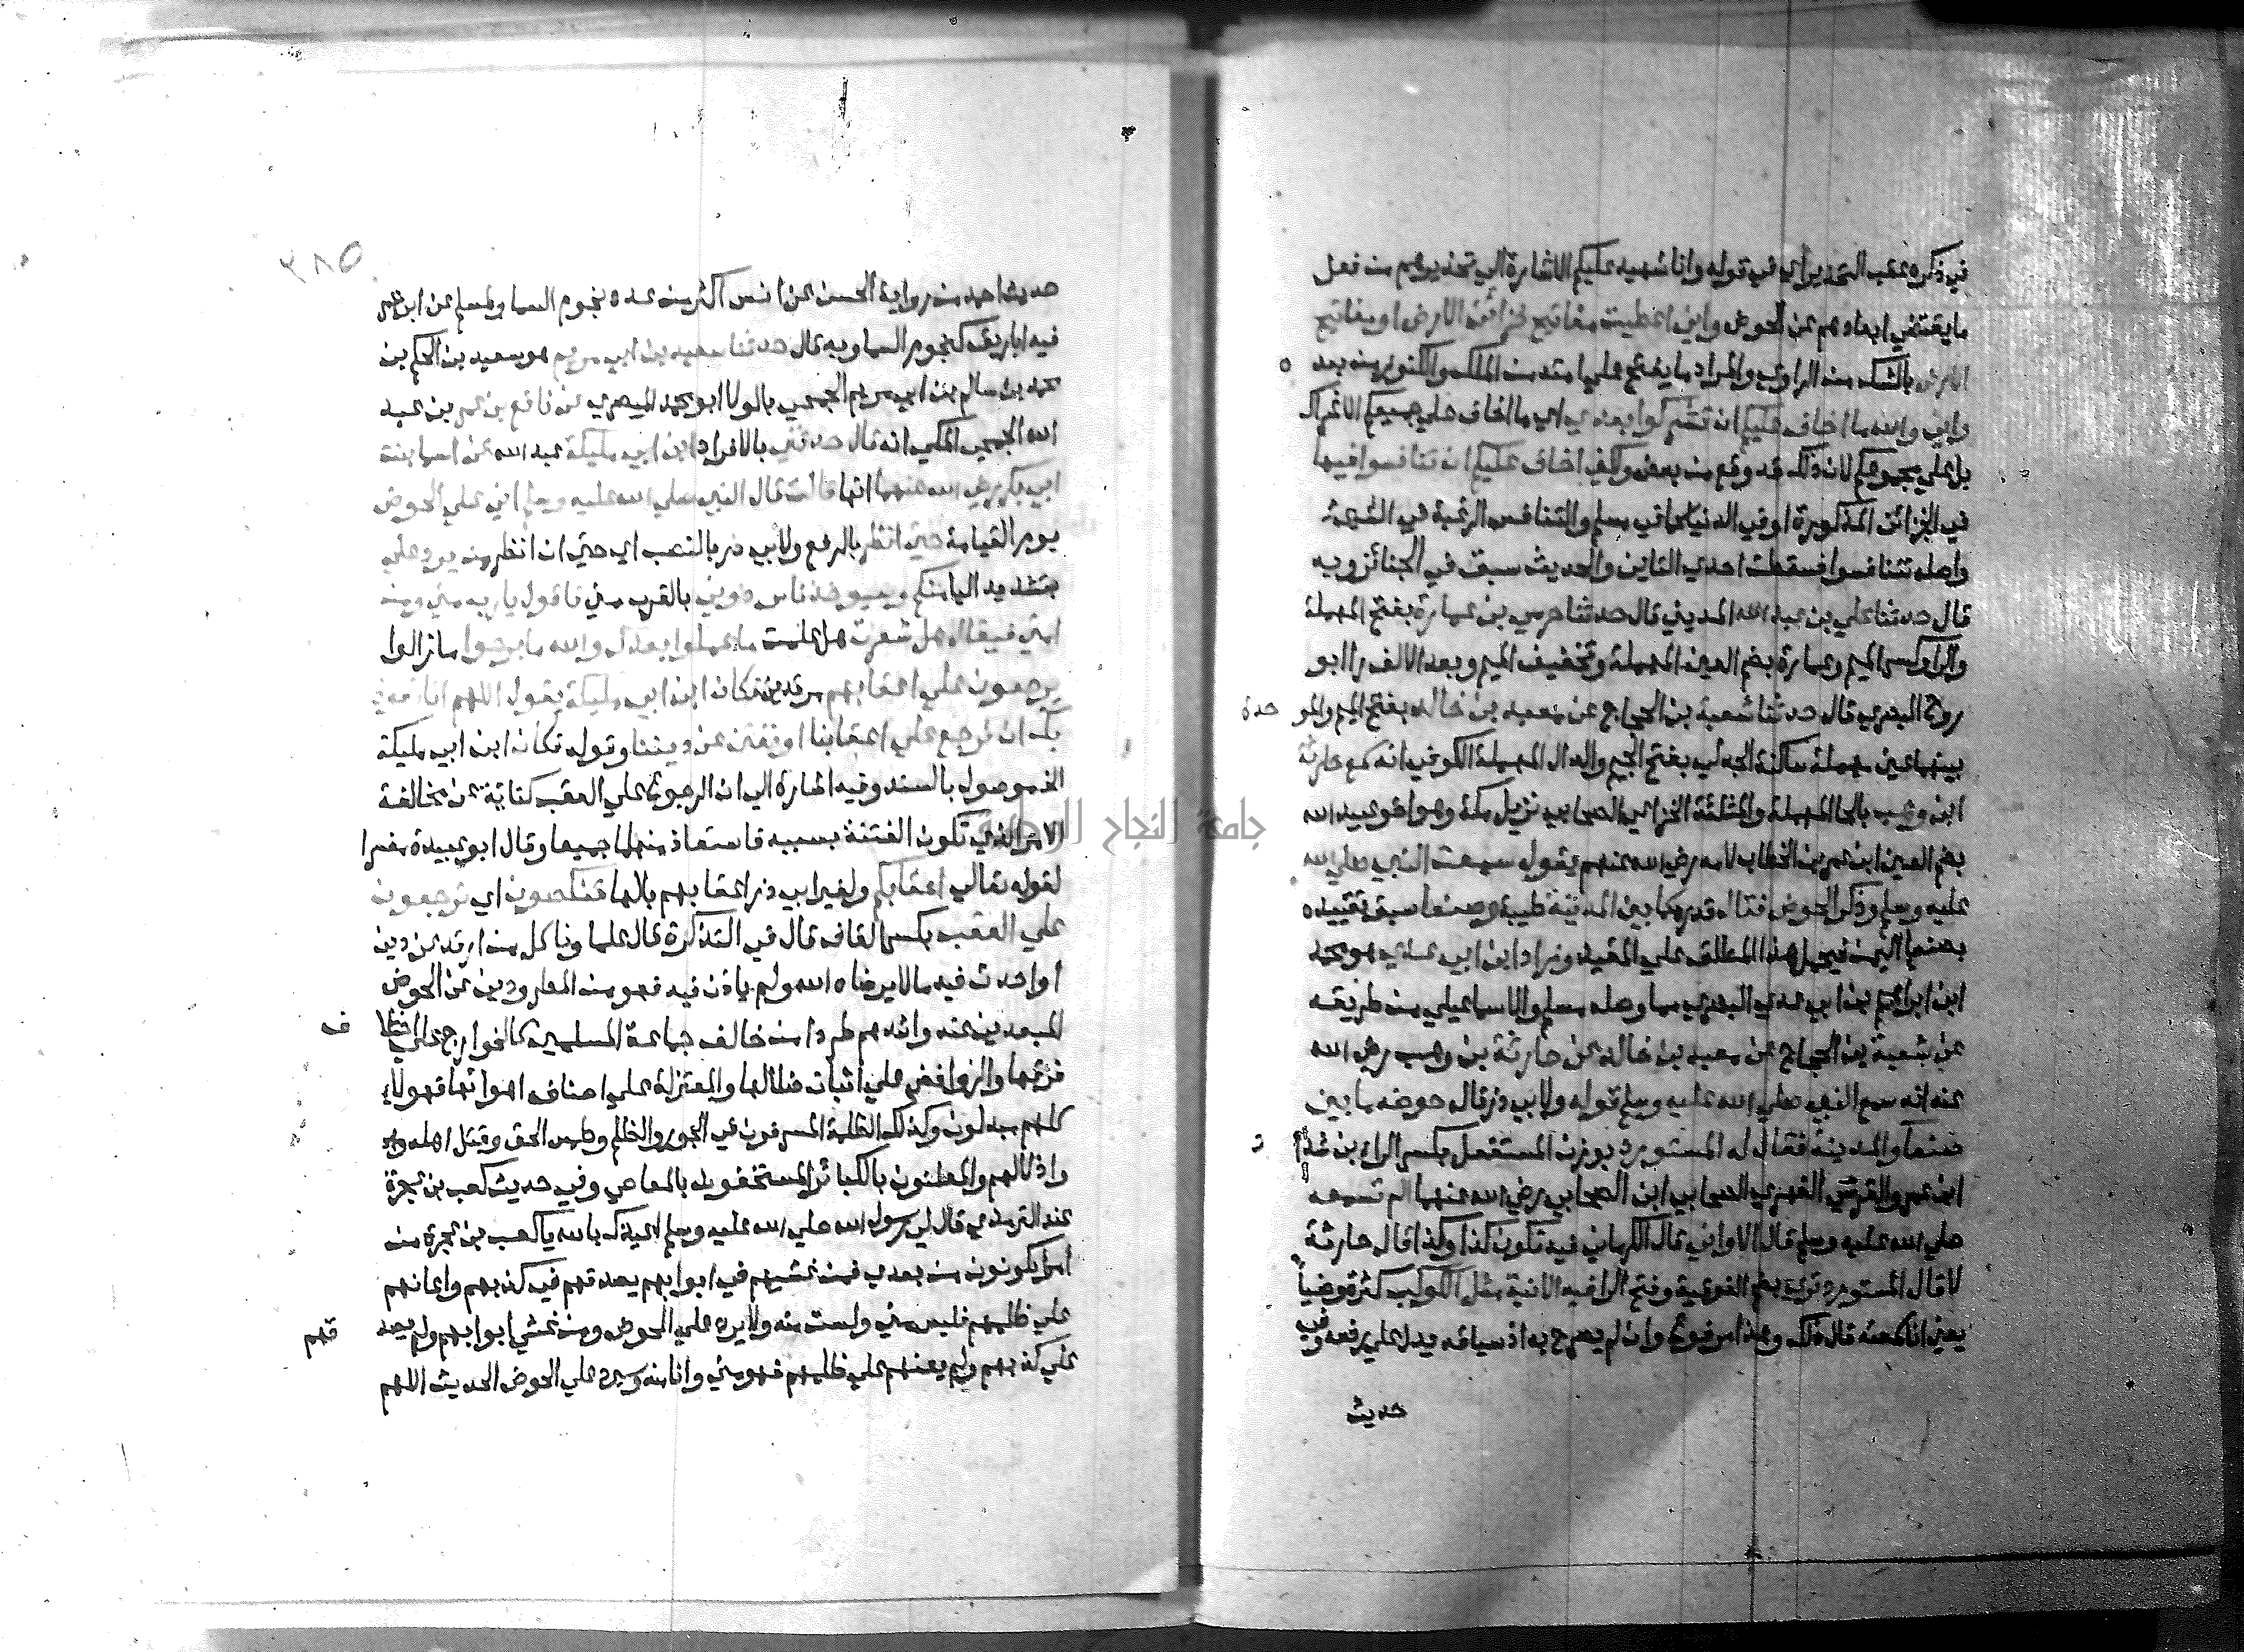 في ذكره عقب التحذير أي في قوله وانا شهيد عليكم الاشارة الي تحذيرهم من فعل
ما يقتضي ابعادهم عن الحوض واني اعطيت مفاتيح خزائن الارض او مفاتيح
الارض بالشك من الراوي والمراد ما يفتح علي امته من الملك والكنوز من بعده
واني والله ما اخاف عليكم ان تشركوا بعدي اي ما اخاف علي جميعكم الاشراك
بل علي مجموعكم لان ذلك قد وقع من بعض ولكني اخاف عليكم ان تنافسوا فيها
في الخزائن المذكورة او في الدنيا كما في مسلم والتنافس الرغبة في الشيء
واصله تتنافسوا فسقطت احدي التاين والحديث سبق في الجنائز وبه
قال حدثنا علي بن عبد الله المديني قال حدثنا حرمي بن عمارة بفتح المهملة
والرا وكسر الميم وعمارة بضم العين المهملة وتخفيف الميم وبعد الالف را ابو
روح البصري قال حدثنا شعبة بن الحجاج عن معبد بن خالد بفتح الميم والموحدة
بينهما عين مهملة ساكنة الجدلي بفتح الجيم والدال المهملة الكوفي انه سمع حارثة
ابن وهب بالحا المهملة والمثلثة الخزاعي الصحابي نزيل مكة وهو اخو عبيد الله
بضم العين ابن عمر بن الخطاب لامه رضي الله عنهم يقول سمعت النبي صلي الله
عليه وسلم وذكر الحوض فقال قدره كما بين المدينة طيبة وصنعا سبق تقييده
بصنعا اليمن فيحمل هذا المطلق علي المقيد وزاد ابن ابي عدي هو محمد
ابن ابراهيم بن ابي عدي البصري مما وصله مسلم والاسماعيلي من طريقه
عن شعبة بن الحجاج عن معبد بن خالد عن حارثة بن وهب رضي الله
عنه انه سمع النبي صلي الله عليه وسلم قوله ولابي ذر قال حوضه ما بين
صنعا والمدينة فقال له المستورد بوزن المستفعل بكسر الراء بن شداد
ابن عمرو القرشي الفهري الصحابي ابن الصحابي رضي الله عنهما الم تسمعه
صلي الله عليه وسلم قال الاواني قال الكرماني فيه تكون كذا وكذا قال حارثة
لا قال المستورد تري بضم الفوقية وفتح الرا فيه الانية مثل الكواكب كثرة وضياً
يعني انا سمعته قال ذلك وهذا مرفوع وان لم يصرح به اذ سياقه يدل علي رفعه وفي
حديث
٣٨٥
حديث احمد من رواية الحسن عن انس اكثر من عدد نجوم السما ولمسلم عن ابن عمر
فيه اباريق كنجوم السما وبه قال حدثنا سعيد بن ابي مريم هو سعيد بن الحكم بن
محمد بن سالم بن ابي مريم الجمحي بالولا ابو محمد المصري عن نافع بن عمر بن عبد
الله الجمحي المكي انه قال حدثني بالافراد ابن ابي مليكة عبد الله عن اسما بنت
ابي بكر رضي الله عنهما انها قالت قال النبي صلي الله عليه وسلم اني علي الحوض
يوم القيامة حتي انظر بالرفع ولابي ذر بالنصب اي حتي ان انظر من يرد علي
بتشديد اليا منكم وسيوخذ ناس دوني بالقرب مني فاقول يا رب مني ومن
امتي فيقال هل شعرت هل علمت ما عملوا بعدك والله ما برحوا ما زالوا
يرجعون علي اعقابهم مرتدين فكان ابن ابي مليكة يقول اللهم انا نعوذ
بك ان نرجع علي اعقابنا او نفتن عن ديننا وقوله فكان ابن ابي مليكة
الخ موصول بالسند وفيه اشارة الي ان الرجوع علي العقب كناية عن مخالفة
الامر الذي تكون الفتنة بسببه فاستعاذ منهما جميعا وقال ابو عبيدة مفسرا
لقوله تعالي اعقابكم ولغير ابي ذر اعقابهم بالها تنكصون اي ترجعون
علي العقب بكسر القاف قال في التذكرة قال علماونا كل من ارتد عن دين
أو احدث فيه ما لا يرضاه الله ولم ياذن فيه فهو من المطرودين عن الحوض
المبعدين عنه واشدهم طردا من خالف جماعة المسلمين كالخوارج علي اختلاف
فرقها والروافض علي اثبات ضلالها والمعتزلة علي اصناف اهوائها فهولاء
كلهم مبدلون وكذلك الظلمة المسرفون في الجور والظلم وطمس الحق وقتل اهله
واذلالهم والمعلنون بالكبائر المستخفون بالمعاصي وفي حديث كعب بن عجرة
عند الترمذي قال لي رسول الله صلي الله عليه وسلم اعيذك بالله يا كعب بن عجرة من
امرا يكونون من بعدي فمن غشيهم في ابوابهم يصدقهم في كذبهم واعانهم
علي ظلمهم فليس مني ولست منه ولا يرد علي الحوض ومن غشي ابوابهم ولم يصدقهم
علي كذبهم ولم يعنهم علي ظلمهم فهو مني وانا منه وسيرد علي الحوض الحديث اللهم
جامعة النجاح